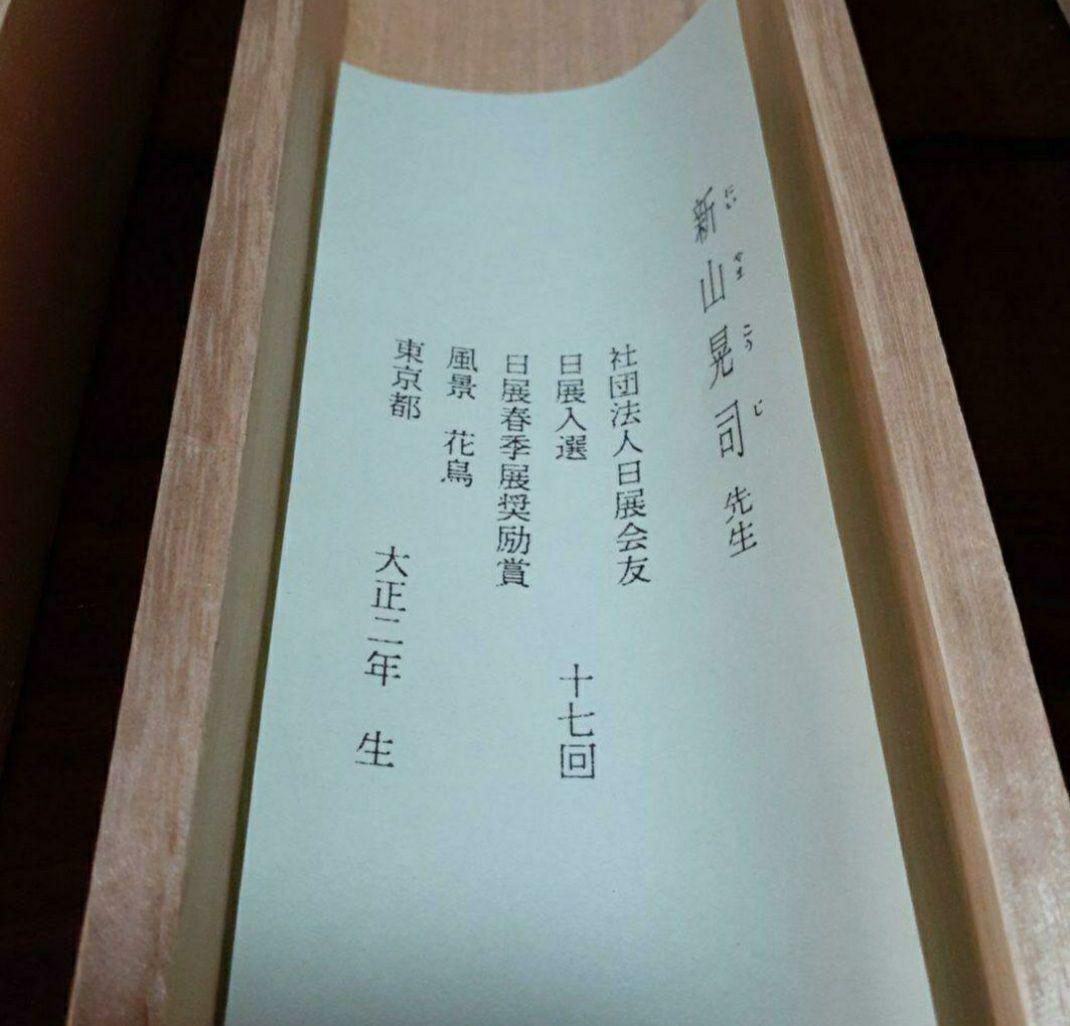 新山晃司先生
にいやまこうじ
社団法人日展会友
日展入選 十七回
日展春季展奨励賞
風景 花鳥
東京都 大正二年 生